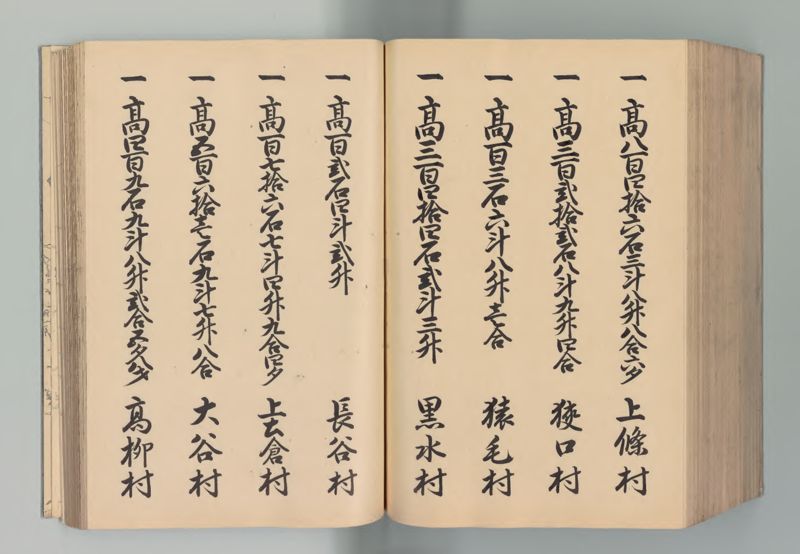 一 高八百四拾六石三斗八升八合六夕 上條村
一 高三百弐拾弐石八斗九升四合 狹口村
一 高百三石六斗八升壱合 猿毛村
一 高三百四拾四石弐斗三升 黒水村
一 高百弐石四斗弐升 長谷村
一 高百七拾六石七斗四升九合四夕 上土倉村
一 高五百六拾壱石九斗七升八合 大谷村
一 高四百九石九斗八升弐合五夕八才 高柳村